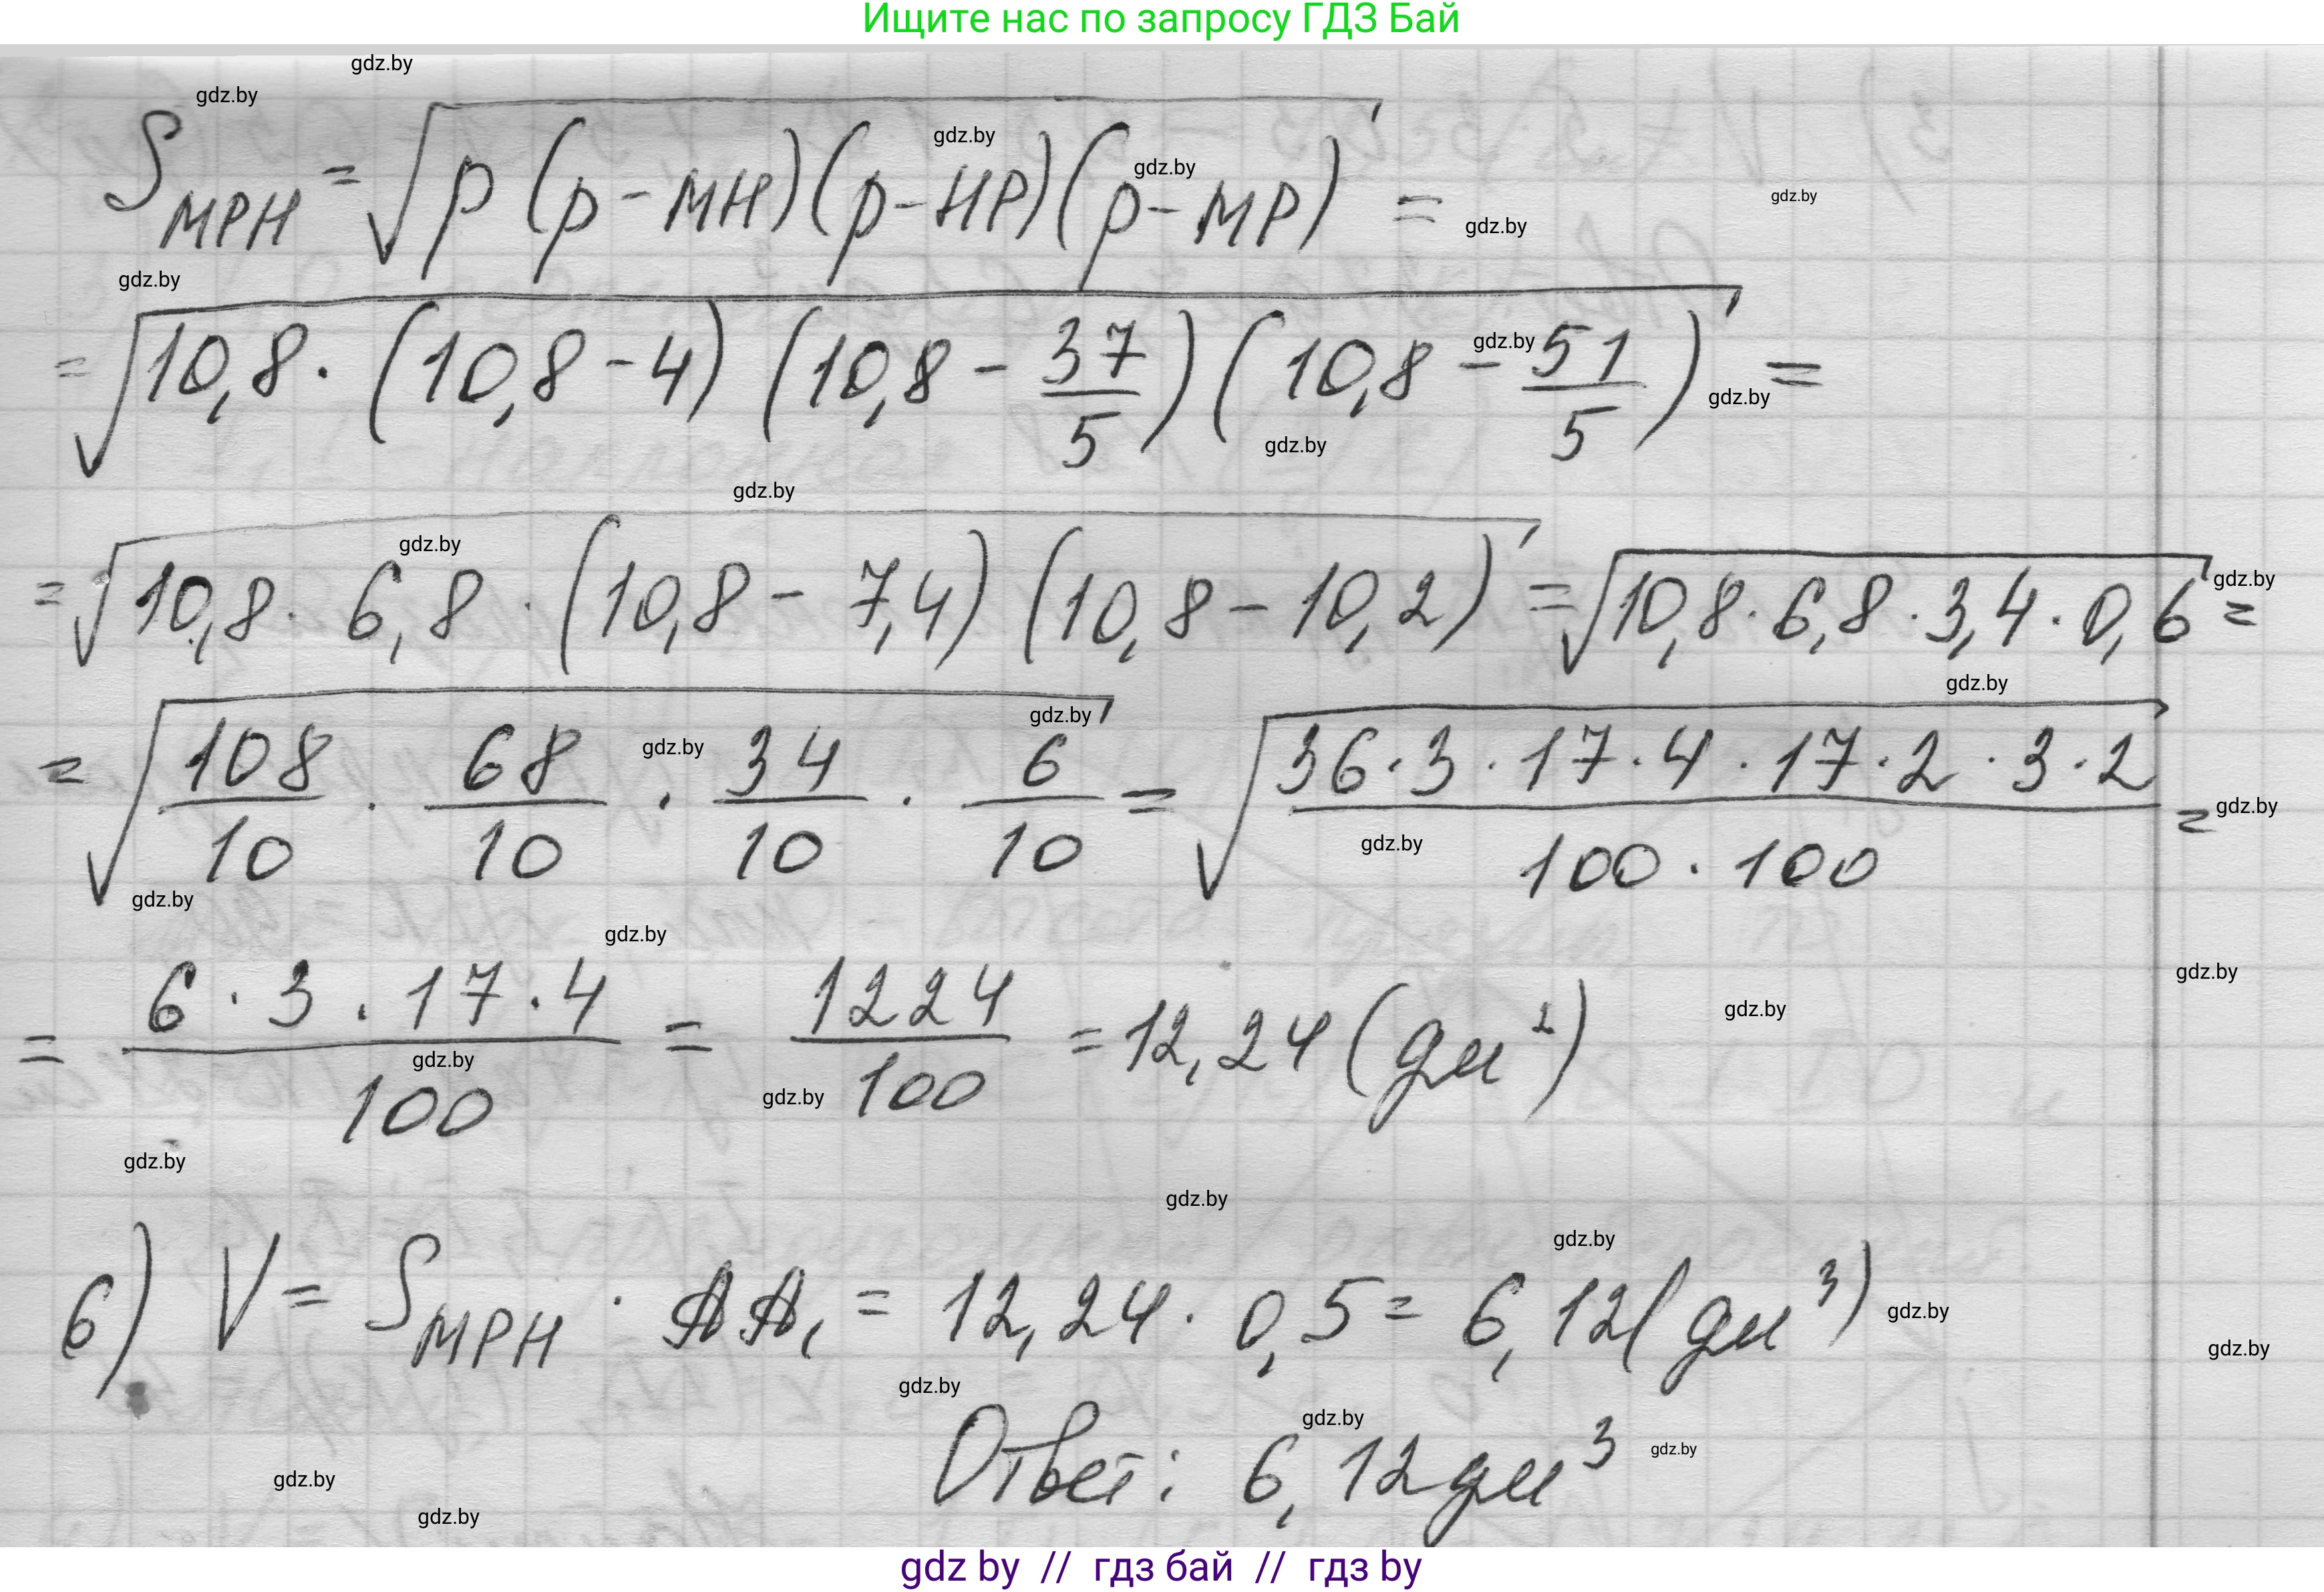 Ищите нас по запросу ГДЗ Бай
gdz.by
gdz.by
gdz.by
gdz.by
gdz.by
S_MPH = √(p(p-MH)(p-HP)(p-MP)) =
gdz.by
gdz.by
= √(10,8·(10,8-4)(10,8-37/5)(10,8-51/5)) =
gdz.by
gdz.by
gdz.by
gdz.by
gdz.by
= √(10,8·6,8·(10,8-7,4)(10,8-10,2)) = √(10,8·6,8·3,4·0,6) =
gdz.by
gdz.by
gdz.by
gdz.by
= √(108/10·68/10·34/10·6/10) = √((36·3·17·4·17·2·3·2)/(100·100)) =
gdz.by
gdz.by
gdz.by
gdz.by
gdz.by
gdz.by
= (6·3·17·4)/100 = 1224/100 = 12,24 (дм²)
gdz.by
gdz.by
gdz.by
gdz.by
gdz.by
6) V = S_MPH · AA₁ = 12,24·0,5 = 6,12 (дм³)
gdz.by
gdz.by
gdz.by
gdz.by
Ответ: 6,12 дм³
gdz.by
gdz.by
gdz.by
gdz by // гдз бай // гдз by